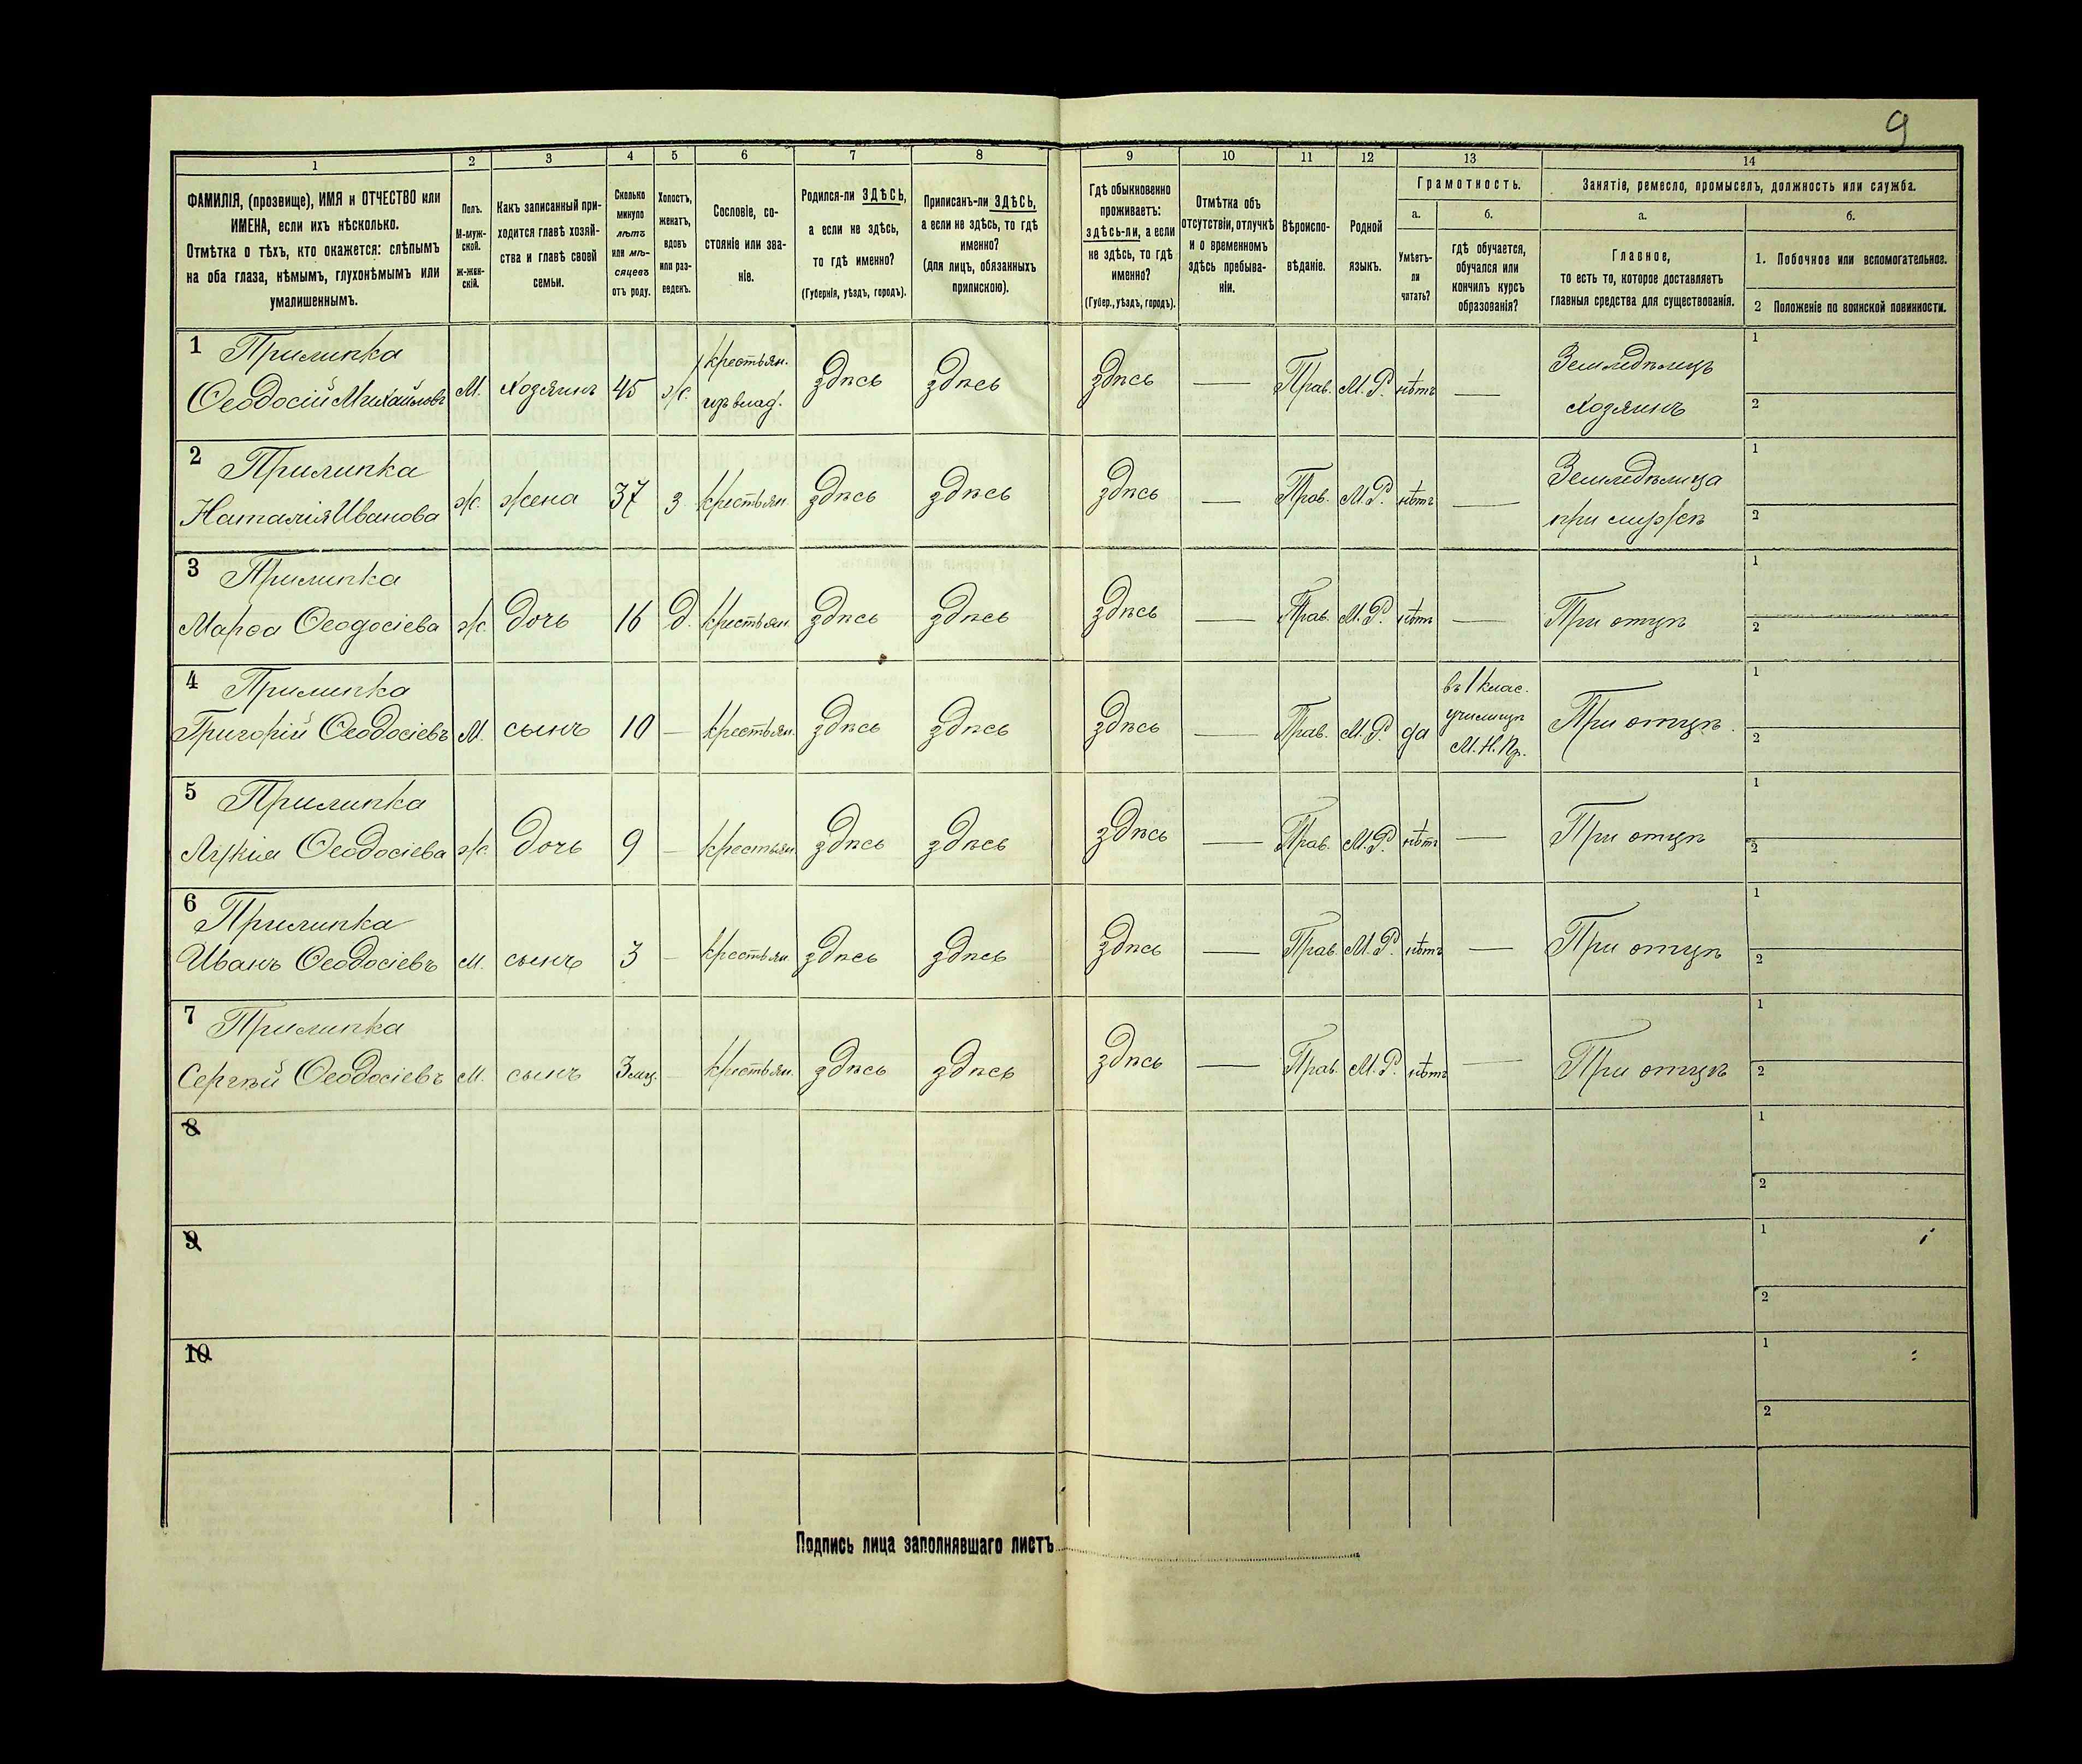 9
1 2 3 4 5 6 7 8 9 10 11 12 13 14
ФАМИЛІЯ, (прозвище), ИМЯ и ОТЧЕСТВО или
ИМЕНА, если ихъ нѣсколько.
Отмѣтка о тѣхъ, кто окажется: слѣпымъ
на оба глаза, нѣмымъ, глухонѣмымъ или
умалишеннымъ.
Полъ.
М-муж-
ской.
ж-жен-
скій.
Какъ записанный при-
ходится главѣ хозяй-
ства и главѣ своей
семьи.
Сколько
минуло
лѣтъ
или мѣ-
сяцевъ
отъ роду.
Холостъ,
женатъ,
вдовъ
или раз-
веденъ.
Сословіе, со-
стояніе или зва-
ніе.
Родился-ли ЗДѢСЬ,
а если не здѣсь,
то гдѣ именно?
(Губернія, уѣздъ, городъ).
Приписанъ-ли ЗДѢСЬ,
а если не здѣсь, то гдѣ
именно?
(для лицъ, обязанныхъ
припискою).
Гдѣ обыкновенно
проживаетъ:
здѣсь-ли, а если
не здѣсь, то гдѣ
именно?
(Губер., уѣздъ, городъ).
Отмѣтка объ
отсутствіи, отлучкѣ
и о временномъ
здѣсь пребыва-
ніи.
Вѣроиспо-
вѣданіе.
Родной
языкъ.
Грамотность.
а.
Умѣетъ-
ли
читать?
б.
гдѣ обучается,
обучался или
кончилъ курсъ
образованія?
Занятіе, ремесло, промыселъ, должность или служба.
а.
Главное,
то есть то, которое доставляетъ
главныя средства для существованія.
б.
1. Побочное или вспомогательное.
2 Положеніе по воинской повинности.
1 Прилипка крестьян. Земледѣлецъ 1
Ѳеодосій Михайловъ М. хозяинъ 45 ж. изъ влад. здѣсь здѣсь здѣсь — Прав. М.Р. нѣтъ — хозяинъ 2
2 Прилипка Земледѣлица 1
Наталія Иванова ж. жена 37 з. крестьян. здѣсь здѣсь здѣсь — Прав. М.Р. нѣтъ — при мужѣ 2
3 Прилипка 1
Марѳа Ѳеодосіева ж. дочь 16 д. крестьян. здѣсь здѣсь здѣсь — Прав. М.Р. нѣтъ — При отцѣ 2
4 Прилипка въ 1 клас. 1
Григорій Ѳеодосіевъ М. сынъ 10 — крестьян. здѣсь здѣсь здѣсь — Прав. М.Р. да училищѣ При отцѣ. 2
М. Н. Пр.
5 Прилипка 1
Лукія Ѳеодосіева ж. дочь 9 — крестьян. здѣсь здѣсь здѣсь — Прав. М.Р. нѣтъ — При отцѣ 2
6 Прилипка 1
Иванъ Ѳеодосіевъ М. сынъ 3 — крестьян. здѣсь здѣсь здѣсь — Прав. М.Р. нѣтъ — При отцѣ 2
7 Прилипка 1
Сергѣй Ѳеодосіевъ М. сынъ 3 мц. — крестьян. здѣсь здѣсь здѣсь — Прав. М.Р. нѣтъ — При отцѣ 2
8 1
2
9 1
2
10 1
2
Подпись лица заполнявшаго листъ